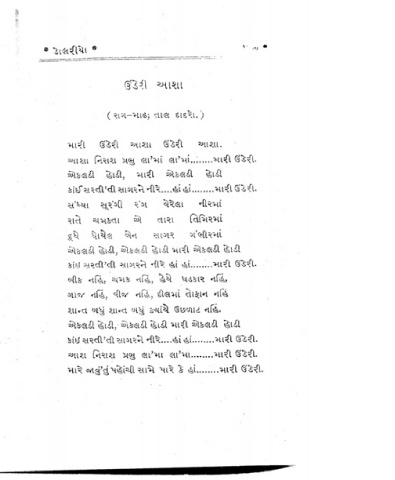 • ડોલરીયો •
ઉંડેરી આશા
( રાગ-માઢ; તાલ દાદરો. )
મારી ઉંડેરી આશા ઉંડેરી આશા.
આશા નિરાશ પ્રભુ લા'માં લા'માં........મારી ઉંડેરી.
એકલડી હોડી, મારી એકલડી હોડી
કાંઈ સરતી'તી સાગરને નીરે....હાં હાં........મારી ઉંડેરી.
સંધ્યા સૂરંગી રંગ વેરેલા નીરમાં
રાતે ચમકતા એ તારા તિમિરમાં
દૂધે ધોયેલ બેન સાગર ગંભીરમાં
એકલડી હોડી, એકલડી હોડી મારી એકલડી હોડી
કાંઇ સરતી'તી સાગરને નીરે હાં હાં........મારી ઉંડેરી.
બીક નહિ, ચમક નહિ, હૈયે ધડકાર નહિ,
ગાજ નહિં, વીજ નહિં, દીલમાં તોફાન નહિ
શાન્ત બધું શાન્ત બધું ક્યાંયે ઉછળાટ નહિ.
એકલડી હોડી, એકલડી હોડી મારી એકલડી હોડી
કાંઇ સરતી'તી સાગરને નીરે....હાં હાં........મારી ઉંડેરી.
આશ નિરાશ પ્રભુ લા'મા લા'મા........મારી ઉંડેરી.
મારે જાવું'તું પહોંચી સામે પારે કે હાં........મારી ઉંડેરી.